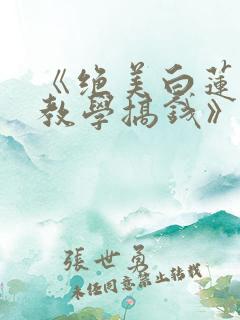 《绝美白莲
教學搞钱》
張世勇
未经同意禁止转载